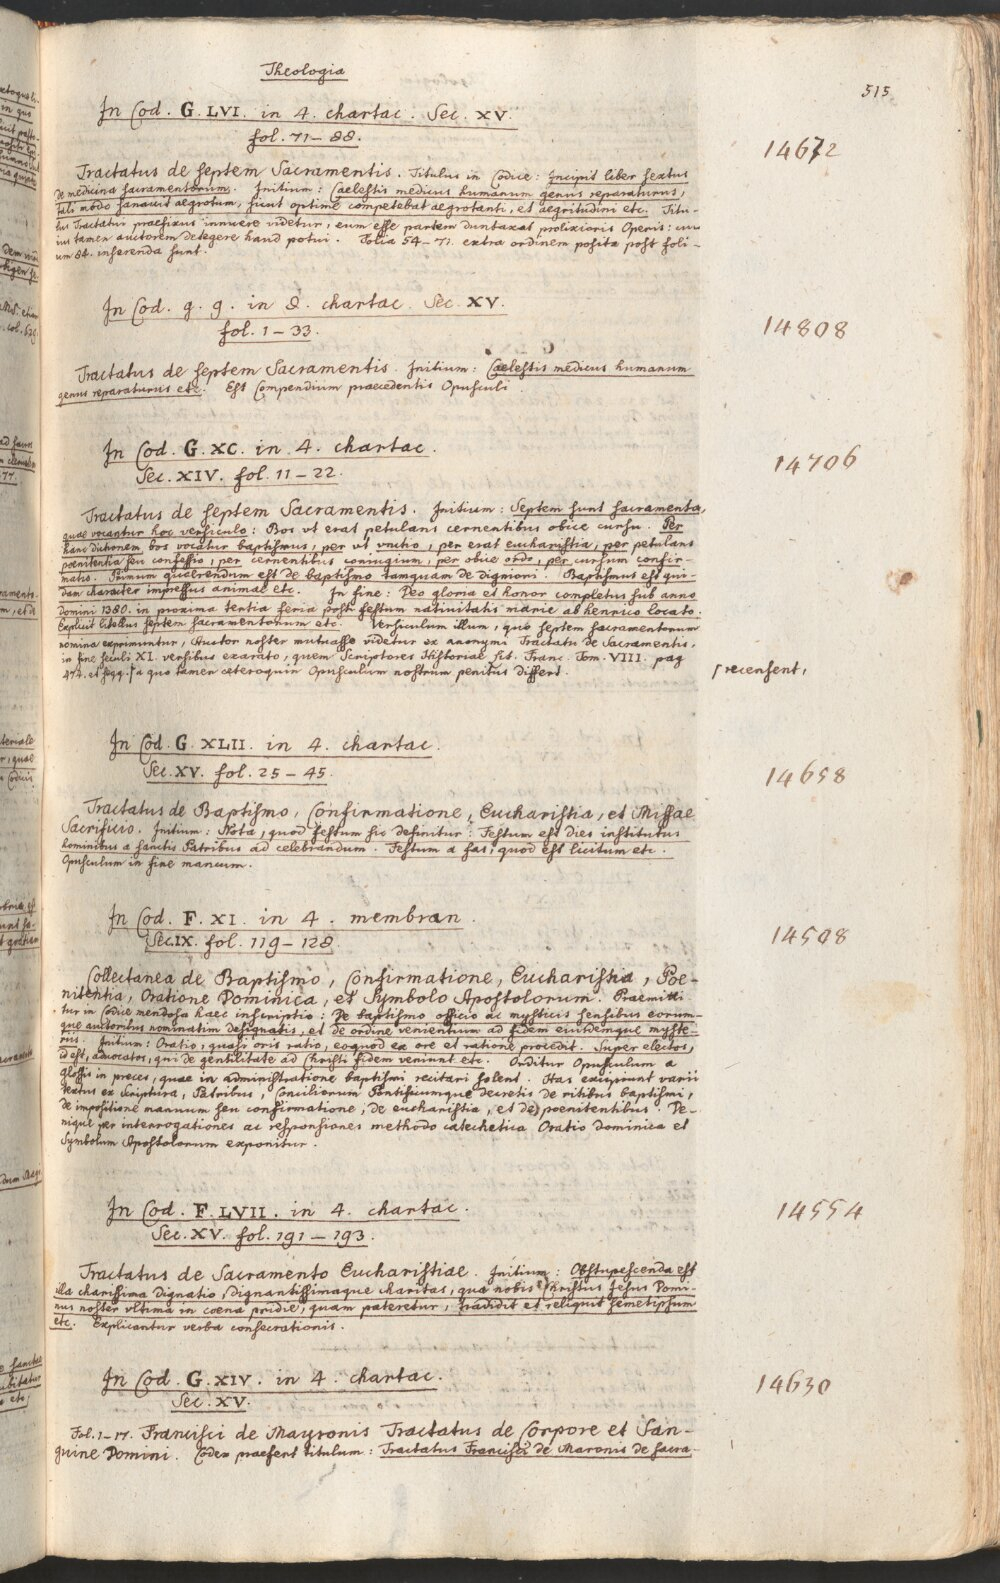 Theologia
515
In Cod. G. LVI. in 4. chartac. Sec. XV.
fol. 71–88.
14672
Tractatus de septem Sacramentis. Titulus in Codice: Incipit liber sextus
de medicina sacramentorum. Initium: Caelestis medicus humanum genus reparaturus,
tali modo sanavit aegrotum, sicut optime competebat aegrotanti, et aegritudini etc. Titu-
lus Tractatui praefixus innuere videtur, eum esse partem duntaxat prolixioris Operis: cu-
ius tamen auctorem detegere haud potui. Folia 54–71. extra ordinem posita post foli-
um 84. inserenda sunt.
In Cod. g. g. in 8. chartac. Sec. XV.
fol. 1–33.
14808
Tractatus de septem Sacramentis. Initium: Caelestis medicus humanum
genus reparaturus etc. Est Compendium praecedentis Opusculi
In Cod. G. XC. in 4. chartac.
Sec. XIV. fol. 11–22.
14706
Tractatus de septem Sacramentis. Initium: Septem sunt sacramenta,
quae vocantur hoc versiculo: Bos vt erat petulans cernentibus obice cursu. Per
hanc dictionem bos vocatur baptismus, per vt vnctio, per erat eucharistia, per petulans
poenitentia seu confessio, per cernentibus coniugium, per obice ordo, per cursum confir-
matio. Primum quaerendum est de baptismo tamquam de digniori. Baptismus est qui-
dam character impressus animal etc. In fine: Deo gloria et honor completus sub anno
Domini 1380. in proxima tertia feria post festum nativitatis marie ab henrico locato.
Explicit libellus septem sacramentorum etc. Versiculum illum, quo septem sacramentorum
nomina exprimuntur, Auctor noster mutuasse videtur ex anonymi Tractatu de Sacramentis,
in fine seculi XI. versibus exarato, quem Scriptores Historiae lit. Franc. Tom. VIII. pag
474. et seqq. ⌈ a quo tamen ceteroquin Opusculum nostrum penitus differt.
⌈ recensent,
In Cod. G. XLII. in 4. chartac.
Sec. XV. fol. 25–45.
14658
Tractatus de Baptismo, Confirmatione, Eucharistia, et Missae
Sacrificio. Initium: Nota, quod festum sic definitur: Festum est dies institutus
hominibus a sanctis Patribus ad celebrandum. Festum a fas, quod est licitum etc.
Opusculum in fine mancum.
In Cod. F. XI. in 4. membran.
Sec. IX. fol. 119–128.
14508
Collectanea de Baptismo, Confirmatione, Eucharistia, Poe-
nitentia, Oratione Dominica, et Symbolo Apostolorum. Praemitti-
tur in Codice mendosa haec inscriptio: De baptismo officio ac mysticis sensibus eorum-
que auctoribus nominatim designatis, et de ordine venientium ad fidem eiusdemque myste-
riis. Initium: Oratio, quasi oris ratio, eoquod ex ore et ratione procedit. Super electos,
id est, advocatos, qui de gentilitate ad Christi fidem veniunt etc. Orditur Opusculum a
glossis in preces, quae in administratione baptismi recitari solent. Has excipiunt varii
textus ex Scriptura, Patribus, Conciliorum Pontificumque decretis de ritibus baptismi,
de impositione manuum seu confirmatione, de eucharistia, et de poenitentibus. De-
nique per interrogationes ac responsiones methodo catechetica Oratio Dominica et
Symbolum Apostolorum exponitur.
In Cod. F. LVII. in 4. chartac.
Sec. XV. fol. 191–193.
14554
Tractatus de Sacramento Eucharistiae. Initium: Obstupescenda est
illa charissima dignatio, dignantissimaque charitas, qua nobis Christus Jesus Domi-
nus noster vltima in coena pridie, quam pateretur, tradidit et reliquit semetipsum
etc. Explicantur verba consecrationis.
In Cod. G. XIV. in 4. chartac.
Sec. XV.
14630
Fol. 1–17. Francisci de Mayronis Tractatus de Corpore et San-
guine Domini. Codex praefert titulum: Tractatus Francisci de Maronis de sacra-